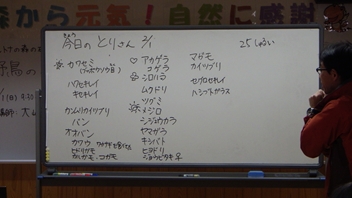 から元気！自然に感謝
きょう
今日のとりさん 2/1
25しゅるい
カワセミ
(ブッポウソウ目)
ハクセキレイ
キセキレイ
カンムリカイツブリ
バン
オオバン
カワウ
ヒドリガモ
カルガモ、コガモ
アカゲラ
コゲラ
シロハラ
ムクドリ
ツグミ
メジロ
シジュウカラ
ヤマガラ
キジバト
ヒヨドリ
ジョウビタキ♀
マガモ
カイツブリ
セグロセキレイ
ハシブトガラス